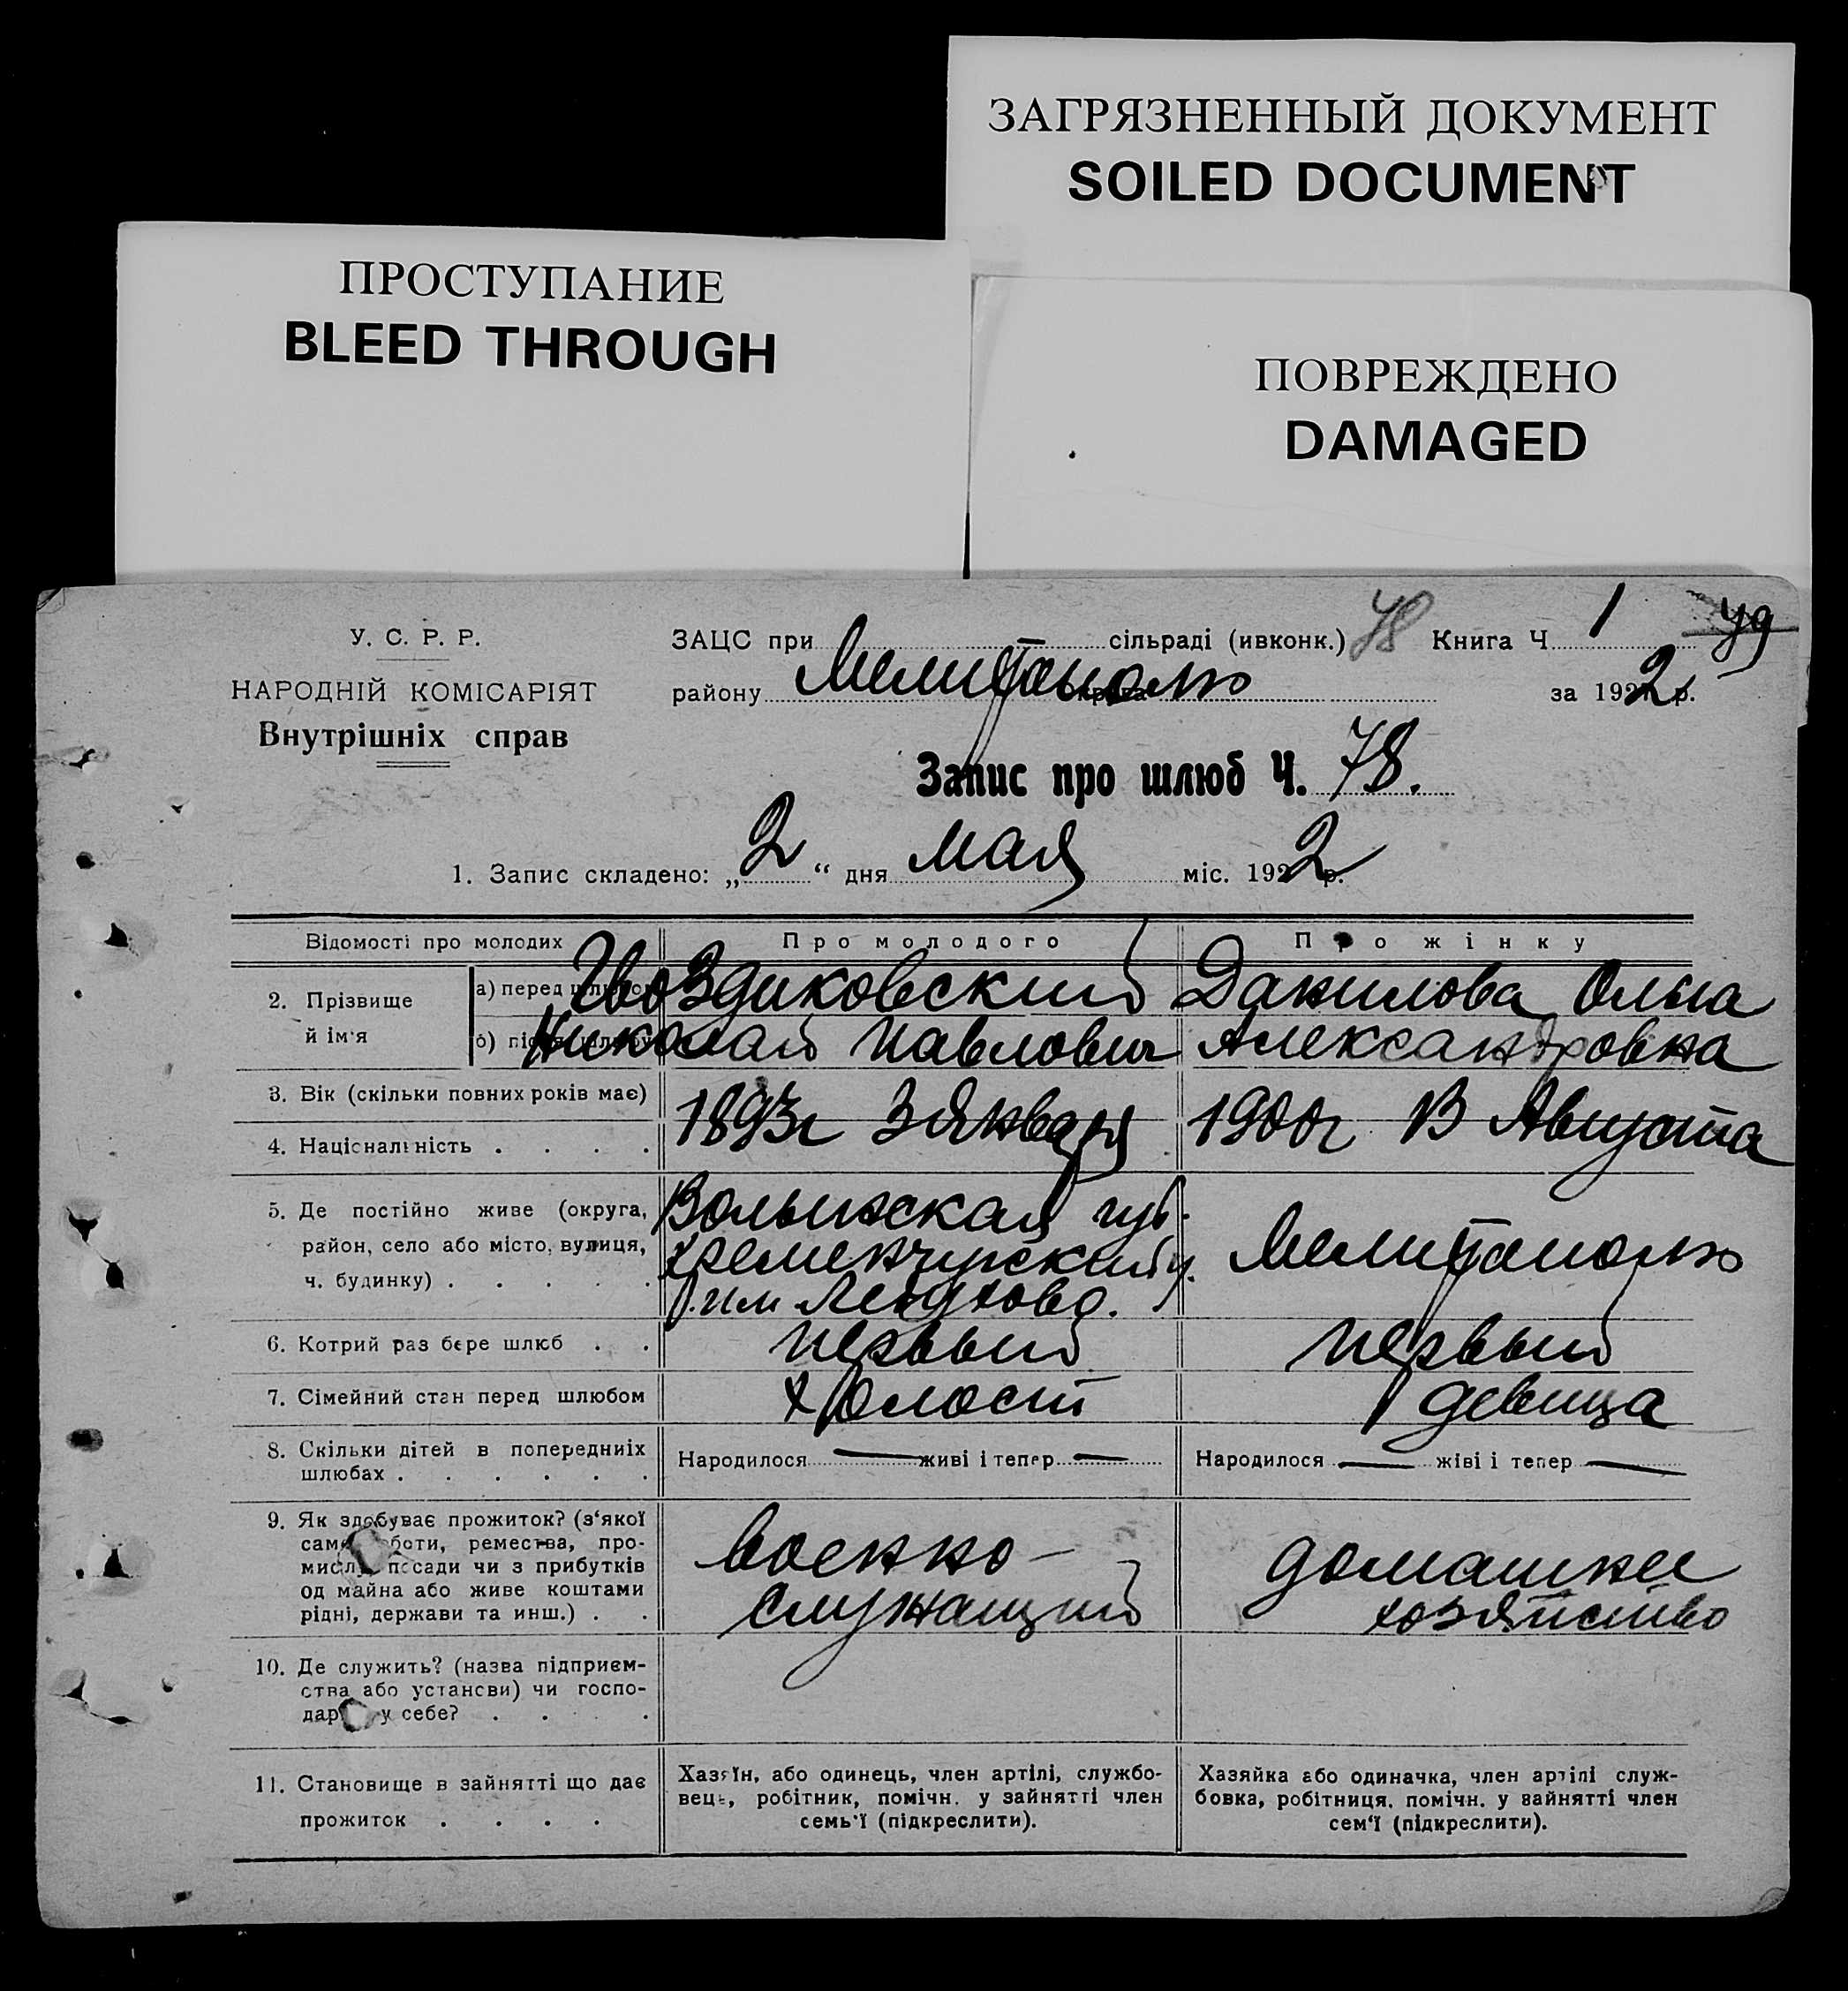 ЗАГРЯЗНЕННЫЙ ДОКУМЕНТ
SOILED DOCUMENT
ПРОСТУПАНИЕ
BLEED THROUGH
ПОВРЕЖДЕНО
DAMAGED
У. С. Р. Р.
НАРОДНІЙ КОМІСАРІЯТ
Внутрішніх справ
ЗАЦС при сільраді (ивконк.) 78 Книга Ч 1 79
району Мелитополь за 1922 р.
Запис про шлюб Ч. 78.
1. Запис складено: „2“ дня мая міс. 1922 р.
Відомості про молодих
Про молодого
Про жінку
2. Прізвище й ім'я
а) перед
Гвоздиковский
Данилова Ольга
б)
Николай Павлович
Александровна
3. Вік (скільки повних років має)
4. Національність
1893г 3 Января
1900г 13 Августа
5. Де постійно живе (округа,
район, село або місто, вулиця,
ч. будинку)
Волынская губ.
Кременчугский у.
Мелитополь
6. Котрий раз бере шлюб
первый
первый
7. Сімейний стан перед шлюбом
холост
девица
8. Скільки дітей в попередниіх
шлюбах
Народилося — живі і тепер —
Народилося — жіві і тепер —
9. Як здобуває прожиток? (з‘якої
саме роботи, ремества, про-
мислу, посади чи з прибутків
од майна або живе коштами
рідні, держави та инш.)
военно-
служащий
домашнее
хозяйство
10. Де служить? (назва підприєм-
ства або установи) чи госпо-
дар у себе?
11. Становище в зайнятті що дає
прожиток
Хазяїн, або одинець, член артілі, службо-
вець, робітник, помічн. у зайнятті член
семь'ї (підкреслити).
Хазяйка або одиначка, член артілі служ-
бовка, робітниця, помічн. у зайнятті член
сем'ї (підкреслити).